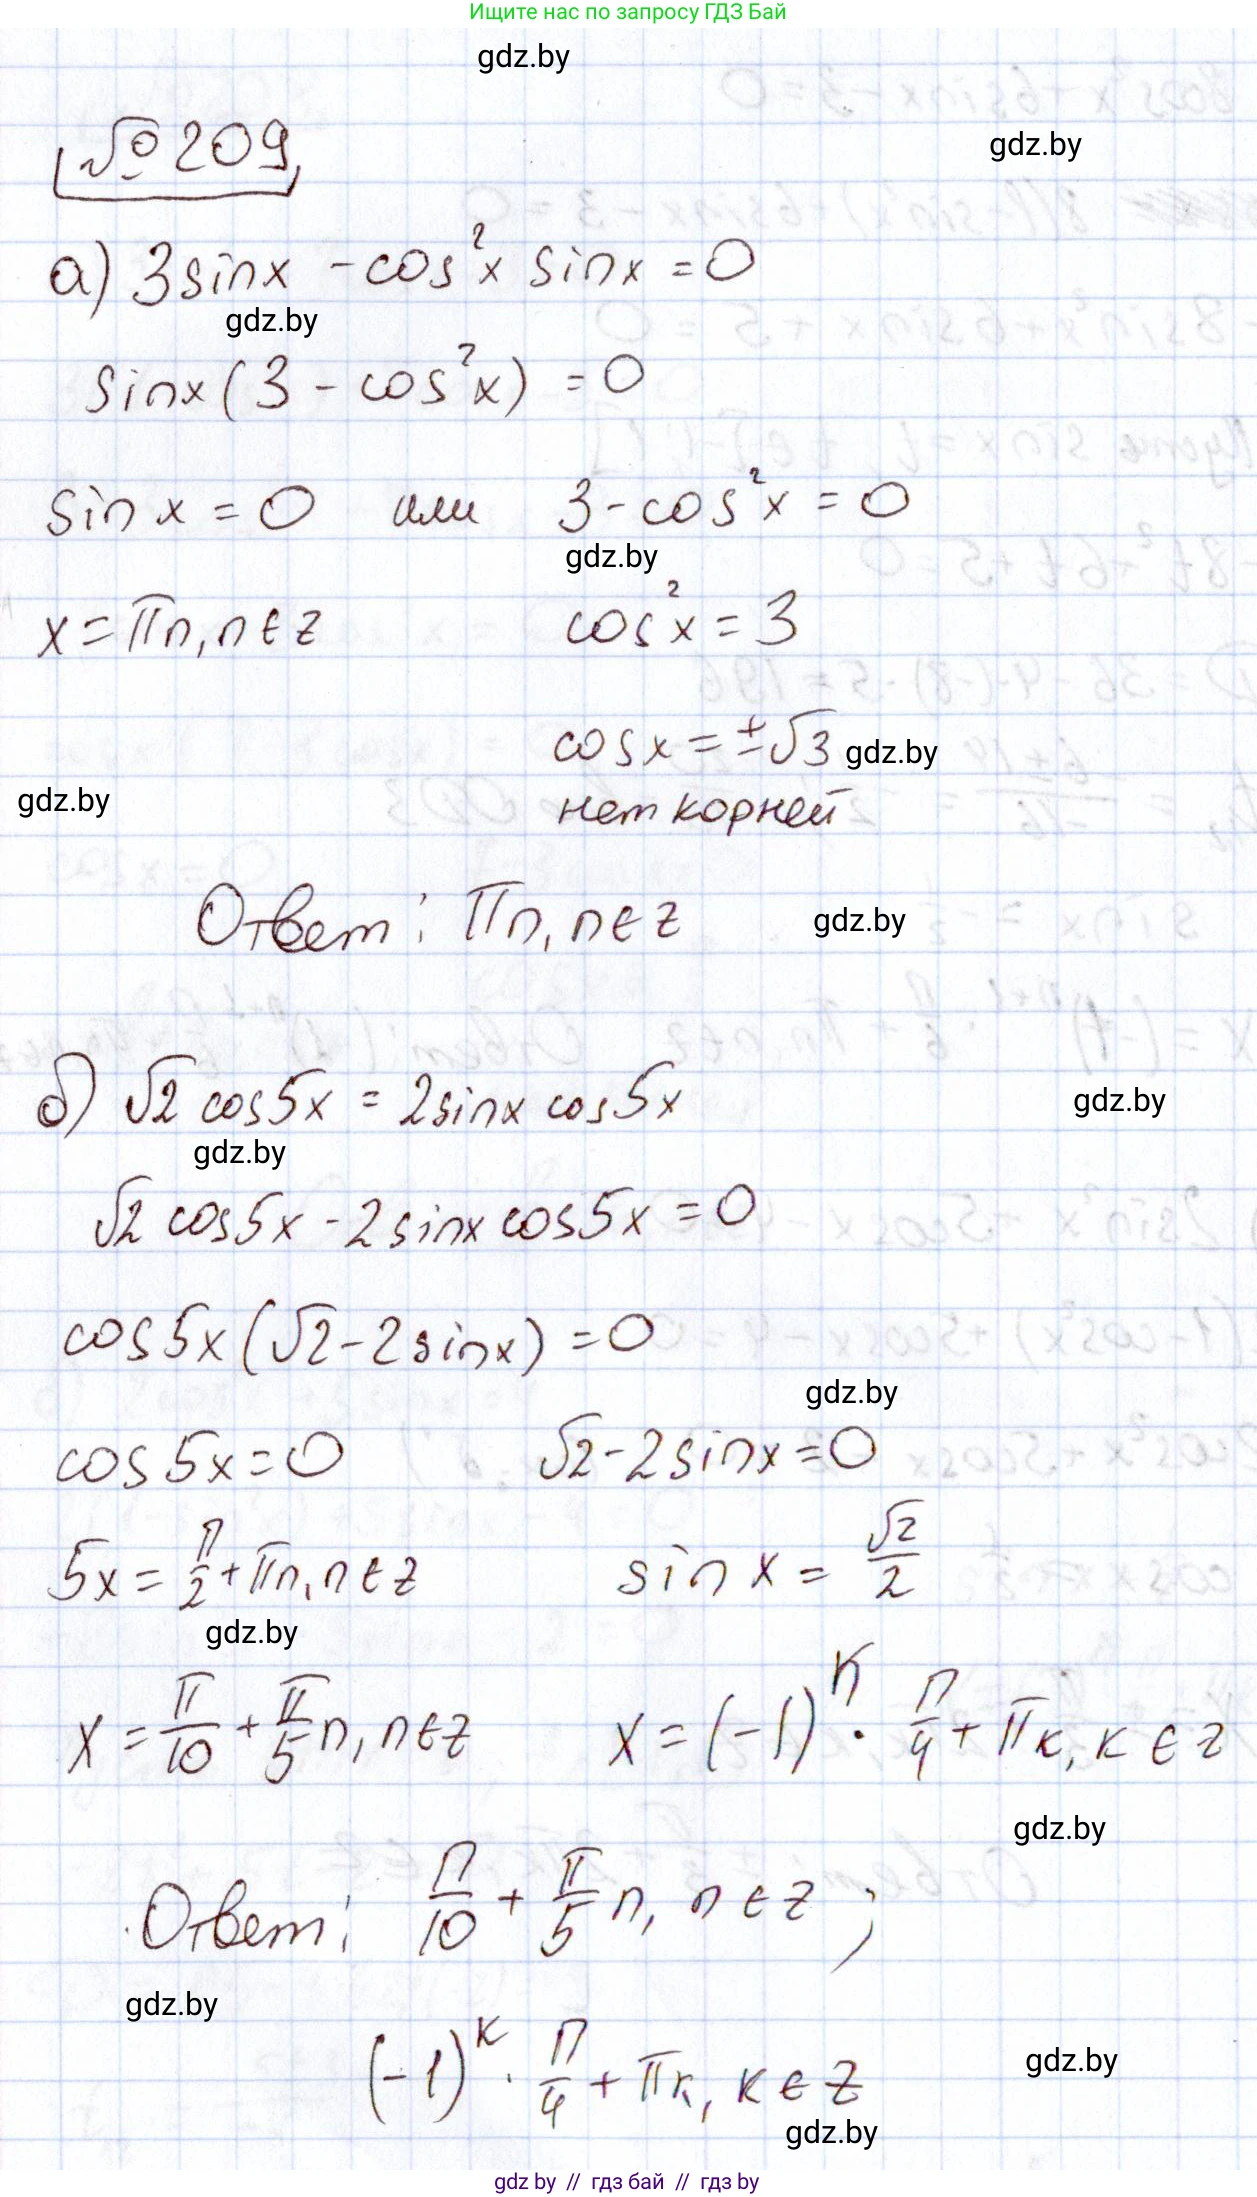 Ищите нас по запросу ГДЗ Бай
gdz.by
№ 209
gdz.by
а) 3sinx - cos²x sinx = 0
gdz.by
sinx(3 - cos²x) = 0
sin x = 0 или 3 - cos²x = 0
gdz.by
x = πn, n ∈ z cos²x = 3
cosx = ±√3 gdz.by
gdz.by
нет корней
Ответ: πn, n ∈ z gdz.by
б) √2 cos5x = 2sinx cos5x
gdz.by
gdz.by
√2 cos5x - 2sinx cos5x = 0
cos5x(√2 - 2sinx) = 0
gdz.by
cos5x = 0 √2 - 2sinx = 0
5x = π/2 + πn, n ∈ z sin x = √2/2
gdz.by
x = π/10 + π/5 n, n ∈ z x = (-1)ᴷ · π/4 + πк, к ∈ z
gdz.by
Ответ: π/10 + π/5 n, n ∈ z ;
gdz.by
(-1)ᴷ · π/4 + πк, к ∈ z
gdz.by
gdz.by
gdz by // гдз бай // гдз by